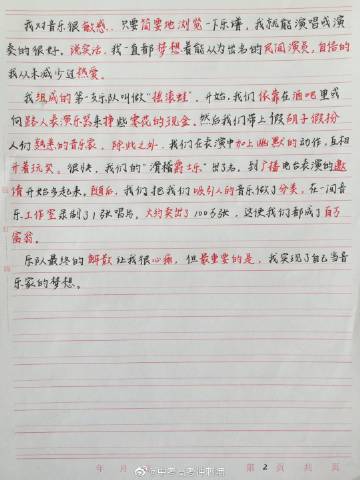 我对音乐很敏感，只要简要地浏览一下乐谱，我就能演唱或演
奏的很好。说实话，我一直都梦想着能从为出名的民间演员，自信的
我从未减少过热爱。
我组成的第一支乐队叫做“摇滚蛙”。开始，我们依靠在酒吧里或
向路人表演乐器来挣些零花的现金。然后我们带上假胡子假扮
人们熟悉的音乐家。除此之外，我们在表演中加上幽默的动作，互相
开着玩笑。很快，我们的“滑稽爵士乐”出了名。到广播电台表演的邀
请开始多起来。随后，我们把我们吸引人的音乐做了分类，在一间音
乐工作室录制了1张唱片，大约卖出了100万张，这使我们都成了百万
富翁。
乐队最终的解散让我很心痛，但最重要的是，我实现了自己当音
乐家的梦想。
年 月
第 2 页 共 页